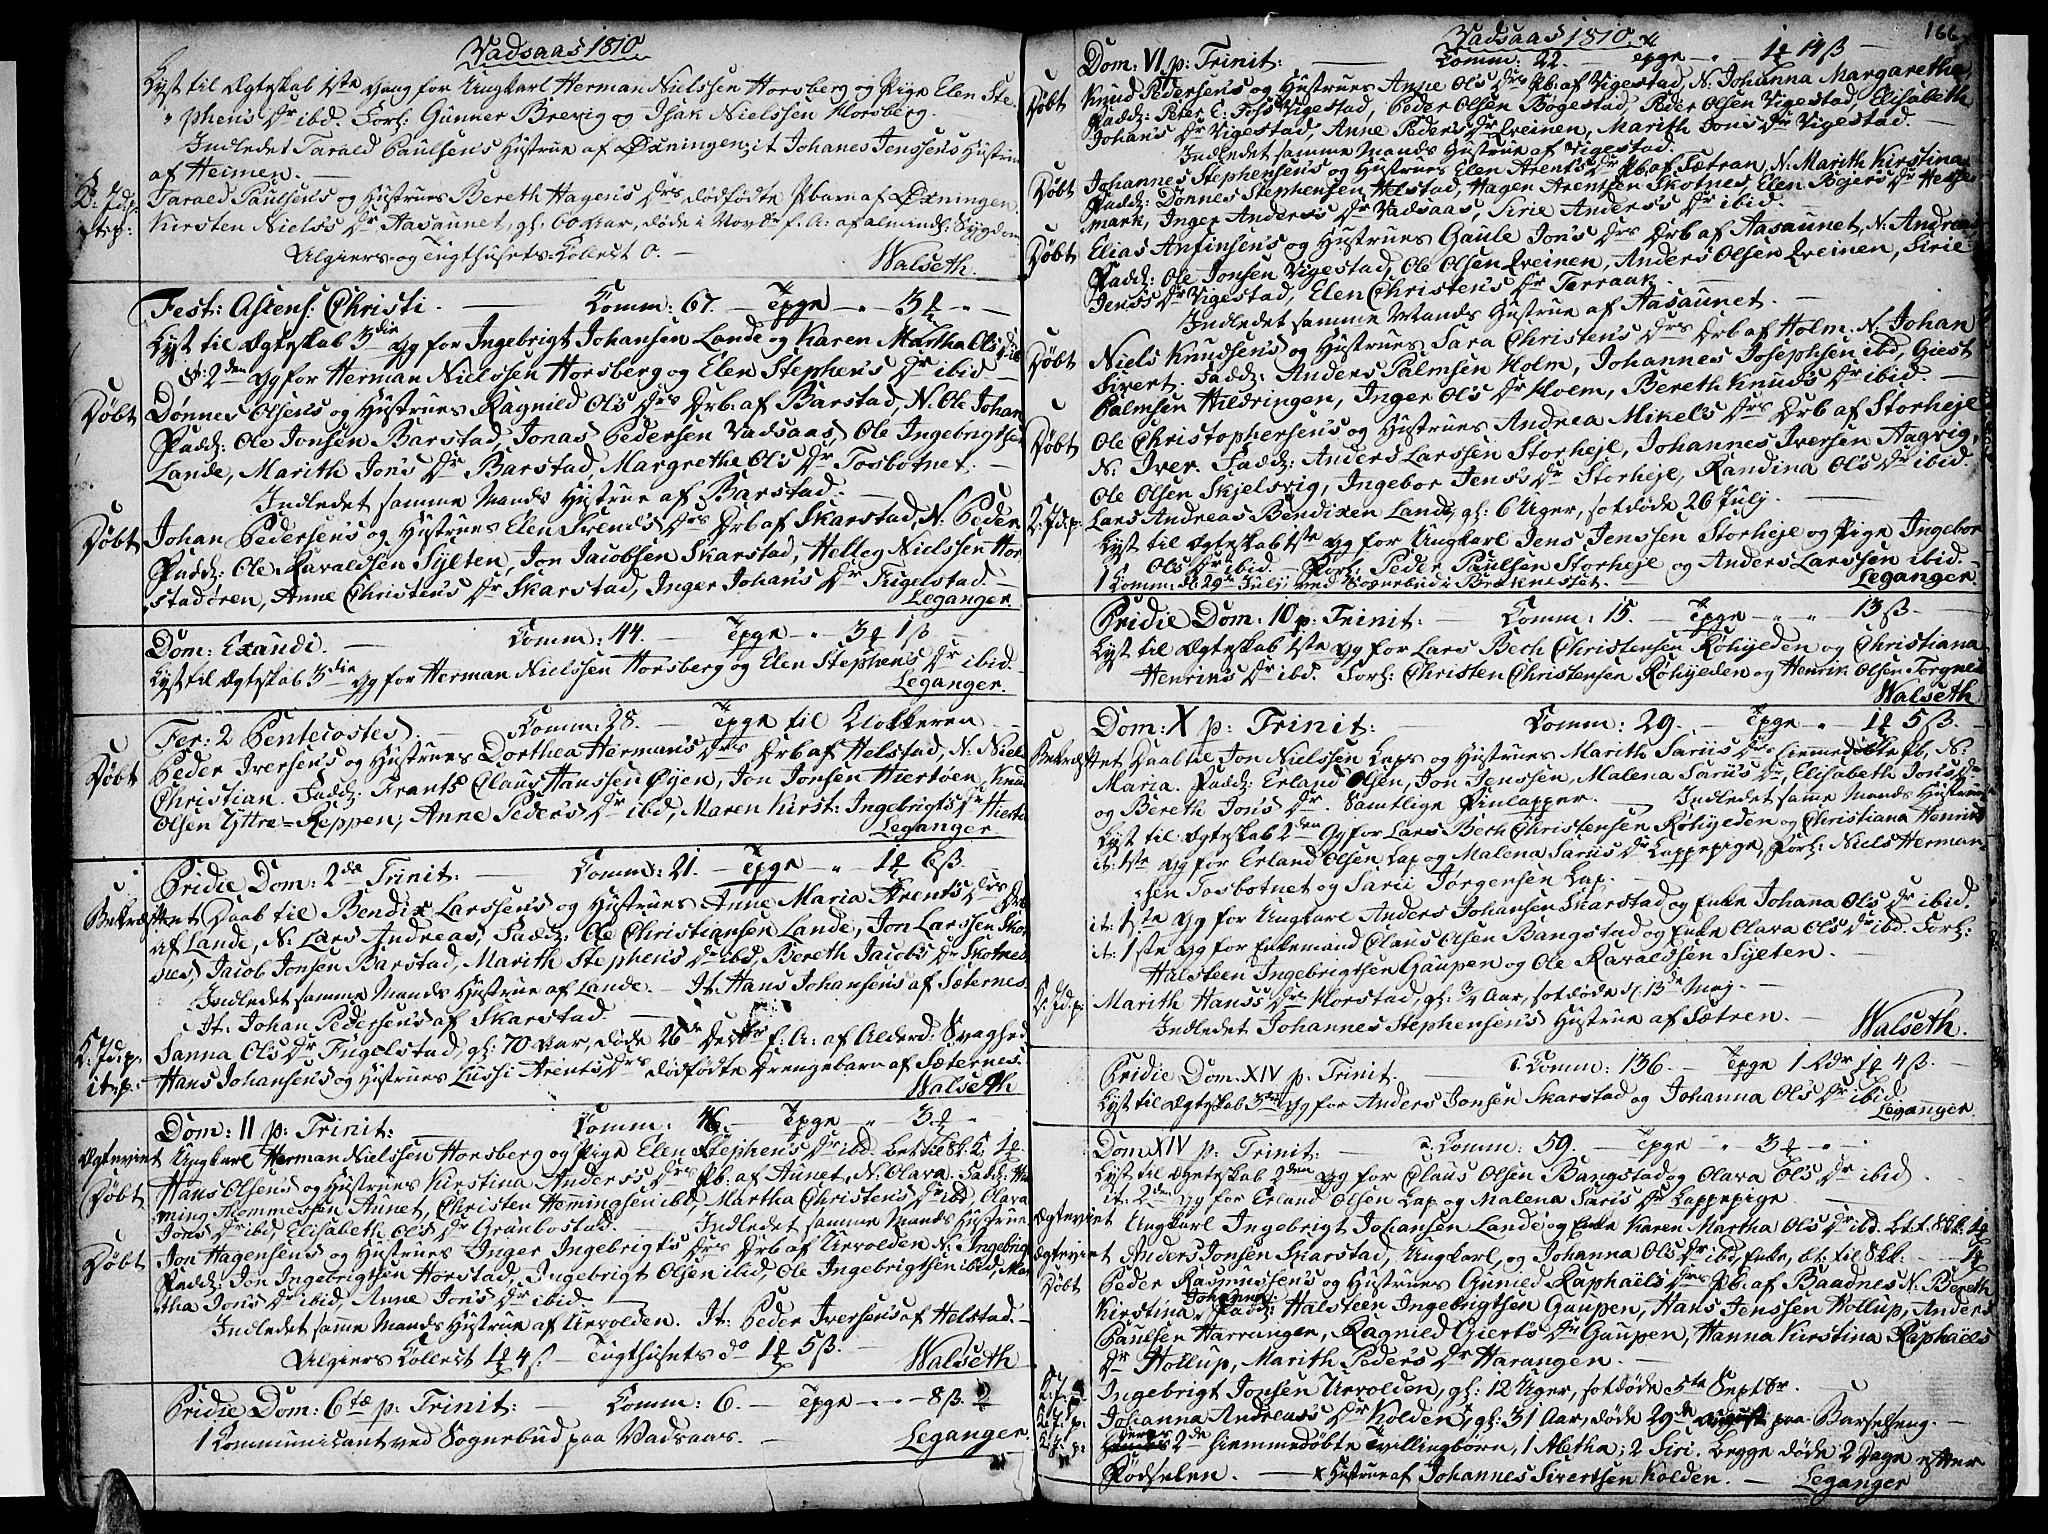 Vadsaas 1810.
Lyst til Ægteskab 1ste Gang for Ungkarl Herman Nielssen Horsberg og Pige Elen Ste-
phens Dr ibd. Forl: Gunner Brevig og Isak Nielssen Horsberg.
Indledet Tarald Paulsen's Hustrue af Dxningen; it Johanes Jenssen's Hustrue
af Heimen.
Tarald Paulsen's og Hustrues Bereth Hagen's Drs dødfødte Pbarn af Dxningen.
Kirsten Niels's Dr Aasaunet, gl: 60 Aar, døde i Novbr f. A: af almindl: Sygdom
Algiers- og Tugthusets-Collect 0.
Walseth.
Fest: Ascens: Christi. Comm: 67. Tpge 3
Lyst til Ægteskab 3die Gg for Ingebrigt Johansen Lande og Karen Martha Ols Dr ib
it: 2den Gg for Herman Nielssen Horsberg og Elen Stephen's Dr ibid
Døbt Dønnes Olsen's og Hustrues Ragnild Ols Drs Drb: af Barstad, N. Ole Johan
Fadd: Ole Jonsen Barstad, Jonas Pedersen Vadsaas, Ole Ingebrigtsen
Lande, Marith Jon's Dr Barstad, Margrethe Ol's Dr Tosbotnet.
Indledet samme Mands Hustrue af Barstad.
Døbt Johan Pedersen's og Hustrues Elen Svend's Drs Drb af Skarstad, N: Peder
Fadd: Ole Ravaldsen Sylten, Jon Jacobsen Skarstad, Helleg Nielssen Hor-
stadøren, Anne Christen's Dr Skarstad, Inger Johan's Dr Fugelstad.
Leganger.
Dom: Exaudi. Comm: 44. Tpge 3 1 ß
Lyst til Ægteskab 3die Gg for Herman Nielssen Horsberg og Elen Stephens Dr ibid.
Leganger.
Fer: 2 Pentecostes. Comm: 28. Tpge til Klokkeren
Døbt Peder Iversen's og Hustrues Dorthea Herman's Drs Drb af Helstad, N. Niels
Christian. Fadd: Frants Claus Hanssen Øyen, Jon Jonsen Hiertøen, Knud
Olsen Yttre-Reppen, Anne Peder's Dr ibid, Maren Kirst: Ingebrigts Dr Hiertø
Leganger
Pridie Dom: 2da Trinit: Comm: 21. Tpge 1 6 ß.
Bekræftet Daab til Bendix Larssen's og Hustrues Anne Maria Arents Drs Drb
af Lande, N: Lars Andreas, Fadd: Ole Christiansen Lande, Jon Larssen Skot-
nes, Jacob Jonsen Barstad, Marith Stephens Dr ibd, Bereth Jacobs Dr Skotnes
Indledet samme Mands Hustrue af Lande. It: Hans Johansens af Sæternes
It: Johan Pedersen's af Skarstad.
Sanna Ols Dr Fugelstad, gl: 70 Aar, døde 26de Decbr f: A: af Alderd: Svaghed
it: p: Hans Johansen's og Hustrues Lussi Arents Drs dødfødte Drengebarn af Sæternes.
Walseth
Dom: II p: Trinit: Comm: 46. Tpge 3
Ægteviet Ungkarl Herman Nielssen Horsberg og Pige Elen Stephens Dr ibd.
Døbt Hans Olsen's og Hustrues Kirstina Anders's Drs Pb: af Aunet, N: Olava. Fadd: He-
ming Mommessen Aunet, Christen Hemingsen ibd, Martha Christens Dr ibd, Olava
Jons Dr ibd, Elisabeth Ols Dr Granbostad. Indledet samme Mands Hustrue
Døbt Jon Hagensen's og Hustrues Inger Ingebrigt's Drs Drb af Urvolden N: Ingebrigt
Fadd: Jon Ingebrigtsen Horstad, Ingebrigt Olsen ibid, Ole Ingebrigtsen ibid, Mar-
tha Jon's Dr ibid, Anne Jon's Dr ibid
Indledet samme Mands Hustrue af Urvolden. It: Peder Iversen's af Helstad.
Algiers Collect 1 4 ß Tugthusets do 1 5 ß.
Walseth
Pridie Dom: 6tæ p: Trinit: Comm: 6. Tpge 8 ß
1 Communicant ved Sognebud paa Vadsaas.
Leganger.
Vadsaas 1810.
166
Dom: VI p: Trinit: Comm: 22. Tpge 1 14 ß
Døbt Knud Pedersen's og Hustrues Anne Ol's Drs Pb: af Vigestad, N. Johanna Margaretha.
Fadd: Peter E: Foss Vigestad, Peder Olsen Bogestad, Peder Olsen Vigestad, Elisabeth
Johan's Dr Vigestad, Anne Peder's Dr Qveinen, Marith Jon's Dr Vigestad.
Indledet samme Mands Hustrue af Vigestad.
Døbt Johannes Stephensen's og Hustrues Elen Arent's Dr Pb: af Sætran, N: Marith Kirstina
Fadd: Dønnes Stephensen Helstad, Hagen Arentsen Skotnes, Elen Bejers Dr Heggel-
mark, Inger Anders's Dr Vadsaas, Sirie Anders's Dr ibid.
Døbt Elias Anfinsen's og Hustrues Gaule Jon's Drs Drb af Aasaunet, N: Andreas
Fadd: Ole Jonsen Vigestad, Ole Olsen Qveinen, Anders Olsen Qveinen, Sirie
Jens's Dr Vigestad, Elen Christen's Dr Terraak.
Indledet samme Mands Hustrue af Aasaunet.
Døbt Niels Knudsen's og Hustrues Sara Christen's Drs Drb af Holm. N: Johan
Sivert. Fadd: Anders Palmsen Holm, Johannes Josephsen ibd, Giest
Palmsen Hildringen, Inger Ol's Dr Holm, Bereth Knud's Dr ibid.
Døbt Ole Christophersen's og Hustrues Andrea Mikels Drs Drb af Storheje
N: Iver. Fadd: Anders Larssen Storheje, Johannes Iversen Aagvig,
Ole Olsen Skjelsvig, Ingebor Jens's Dr Storheje, Randina Ol's Dr ibid.
Lars Andreas Bendixen Lande, gl: 6 Uger, sotdøde 26 July.
Lyst til Ægteskab 1ste Gg for Ungkarl Jens Jenssen Storheje og Pige Ingebor
Ols Dr ibid. Forl: Peder Paulsen Storheje og Anders Larssen ibid.
1 Comm: d: 29de July ved Sognebud i Brækneset.
Leganger
Pridie Dom: 10 p: Trinit: Comm: 15. Tpge 13 ß
Lyst til Ægteskab 1ste Gg for Lars Bech Christensen Røhylden og Christiana
Henrik's Dr ibd. Forl: Christen Christensen Røhylden og Henrik Olsen Torgnes
Walseth
Dom: X p: Trinit: Comm: 29. Tpge 1 5 ß.
Bekræftet Daab til Jon Nielssen Laps og Hustrues Marith Sariis Drs hiemmedøbte Pb, N:
Maria. Fadd: Erland Olsen, Jon Jenssen, Malena Sariis Dr, Elisabeth Jon's Dr
og Bereth Jon's Dr. Samtlige Finlapper. Indledet same Mands Hustrue
Lyst til Ægteskab 2den Gg for Lars Bech Christensen Røhylden og Christiana Henriks
it: 1ste Gg for Erland Olsen Lap og Malena Sariis Dr Lappepige, Forl: Niels Herman-
sen Tosbotnet og Sarii Jørgensen Lap.
it: 1ste Gg for Ungkarl Anders Johansen Skarstad og Enke Johana Ols Dr ibid.
it: 1ste Gg for Enkemand Claus Olsen Bangstad og Enke Olava Ols Dr ibd. Forl:
Halsteen Ingebrigtsen Gaupen og Ole Ravaldssen Sylten.
Marith Hans's Dr Horstad, gl: 3/4 Aar, sotdøde d. 13de Maj.
Indledet Johannes Stephensen's Hustrue af Sætren.
Walseth.
Pridie Dom: XIV p: Trinit. Comm: 136. Tpge 1 Rdr 1 4 ß.
Lyst til Ægteskab 3die Gg for Anders Jonsen Skarstad og Johanna Ols Dr ibid.
Leganger
Dom XIV p: Trinit: Comm: 59. Tpge 3
Lyst til Ægteskab 2den Gg for Claus Olsen Bangstad og Olava Ol's Dr ibid.
it: 2den Gg for Erland Olsen Lap og Malena Saris Dr Lappepige.
Ægteviet Ungkarl Ingebrigt Johansen Lande og Enke Karen Martha Ols Dr ibd.
Ægteviet Anders Jonsen Skarstad, Ungkarl, og Johanna Ols Dr ibd, Enke,
Døbt Peder Rasmussen's og Hustrues Gunild Raphaëls Drs Pb: af Baadnes N. Bereth
Kirstina Johanna: Fadd: Halsteen Ingebrigtsen Gaupen, Hans Jenssen Hollup, Anders
Paulsen Harrangen, Ragnild Giert's Dr Gaupen, Hanna Kirstina Raphaëls
Dr Hollup, Marith Peder's Dr Harangen.
Ingebrigt Jonsen Urvolden, gl: 12 Uger, sotdøde 5te Septbr.
Johanna Andreas's Dr Kolden x, gl: 31 Aar, døde 29de August paa Barselseng.
Deres 2de hiemmedøbte Tvillingbørn, 1 Aletha; 2 Siri. begge døde 2 Dage efter
Fødselen. x Hustrue af Johannes Sivertsen Kolden.
Leganger